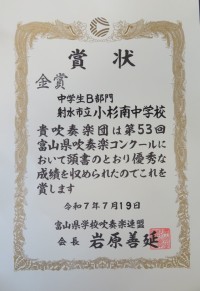 賞状
金賞
中学生B部門
射水市立小杉南中学校
貴吹奏楽団は第53回
富山県吹奏楽コンクールに
おいて頭書のとおり優秀な
成績を収められたのでこれを
賞します
令和7年7月19日
富山県学校吹奏楽連盟
会長 岩原善延